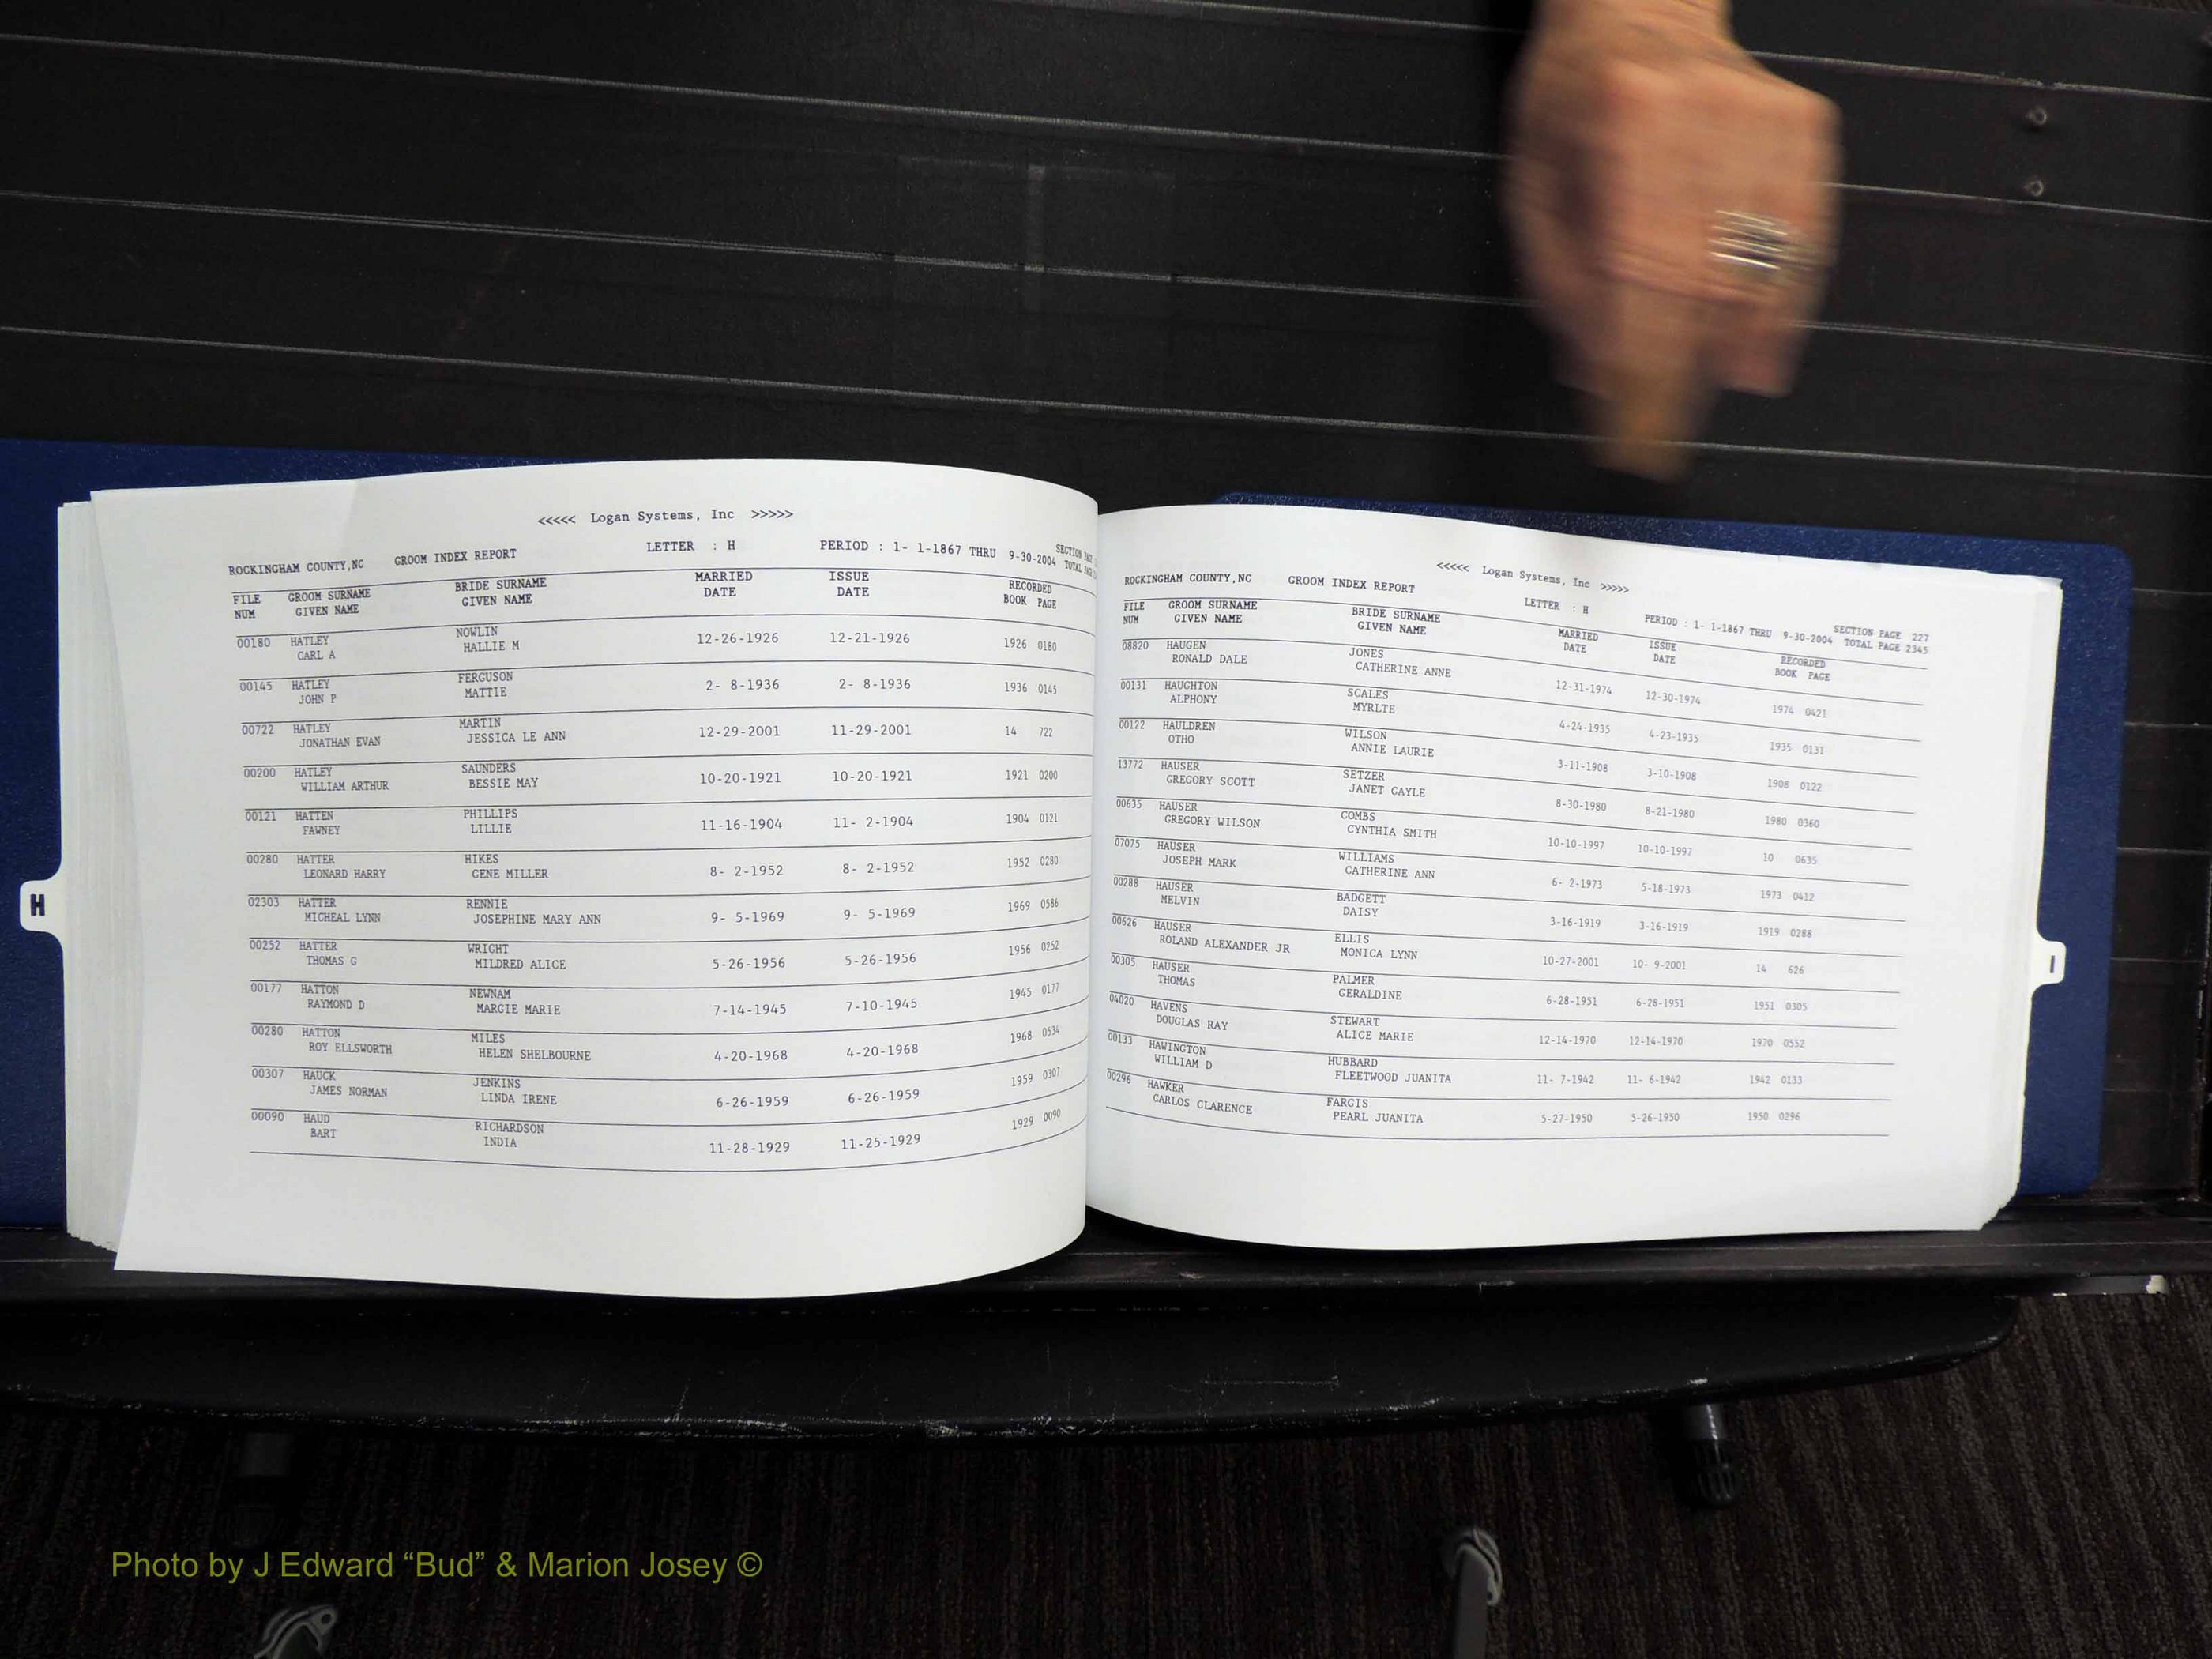 <<<<< Logan Systems, Inc >>>>>
ROCKINGHAM COUNTY,NC GROOM INDEX REPORT LETTER : H PERIOD : 1- 1-1867 THRU 9-30-2004 SECTION
TOTAL
FILE GROOM SURNAME BRIDE SURNAME MARRIED ISSUE RECORDED
NUM GIVEN NAME GIVEN NAME DATE DATE BOOK PAGE
00180 HATLEY NOWLIN 12-26-1926 12-21-1926 1926 0180
CARL A HALLIE M
00145 HATLEY FERGUSON 2- 8-1936 2- 8-1936 1936 0145
JOHN P MATTIE
00722 HATLEY MARTIN 12-29-2001 11-29-2001 14 722
JONATHAN EVAN JESSICA LE ANN
00200 HATLEY SAUNDERS 10-20-1921 10-20-1921 1921 0200
WILLIAM ARTHUR BESSIE MAY
00121 HATTEN PHILLIPS 11-16-1904 11- 2-1904 1904 0121
FAWNEY LILLIE
00280 HATTER HIKES 8- 2-1952 8- 2-1952 1952 0280
LEONARD HARRY GENE MILLER
02303 HATTER RENNIE 9- 5-1969 9- 5-1969 1969 0586
MICHEAL LYNN JOSEPHINE MARY ANN
00252 HATTER WRIGHT 5-26-1956 5-26-1956 1956 0252
THOMAS G MILDRED ALICE
00177 HATTON NEWNAM 7-14-1945 7-10-1945 1945 0177
RAYMOND D MARGIE MARIE
00280 HATTON MILES 4-20-1968 4-20-1968 1968 0534
ROY ELLSWORTH HELEN SHELBOURNE
00307 HAUCK JENKINS 6-26-1959 6-26-1959 1959 0307
JAMES NORMAN LINDA IRENE
00090 HAUD RICHARDSON 11-28-1929 11-25-1929 1929 0090
BART INDIA
H
<<<<< Logan Systems, Inc >>>>>
ROCKINGHAM COUNTY,NC GROOM INDEX REPORT LETTER : H PERIOD : 1- 1-1867 THRU 9-30-2004 SECTION PAGE 227
TOTAL PAGE 2345
FILE GROOM SURNAME BRIDE SURNAME MARRIED ISSUE RECORDED
NUM GIVEN NAME GIVEN NAME DATE DATE BOOK PAGE
08820 HAUGEN JONES 12-31-1974 12-30-1974 1974 0421
RONALD DALE CATHERINE ANNE
00131 HAUGHTON SCALES 4-24-1935 4-23-1935 1935 0131
ALPHONY MYRLTE
00122 HAULDREN WILSON 3-11-1908 3-10-1908 1908 0122
OTHO ANNIE LAURIE
13772 HAUSER SETZER 8-30-1980 8-21-1980 1980 0360
GREGORY SCOTT JANET GAYLE
00635 HAUSER COMBS 10-10-1997 10-10-1997 10 0635
GREGORY WILSON CYNTHIA SMITH
07075 HAUSER WILLIAMS 6- 2-1973 5-18-1973 1973 0412
JOSEPH MARK CATHERINE ANN
00288 HAUSER BADGETT 3-16-1919 3-16-1919 1919 0288
MELVIN DAISY
00626 HAUSER ELLIS 10-27-2001 10- 9-2001 14 626
ROLAND ALEXANDER JR MONICA LYNN
00305 HAUSER PALMER 6-28-1951 6-28-1951 1951 0305
THOMAS GERALDINE
04020 HAVENS STEWART 12-14-1970 12-14-1970 1970 0552
DOUGLAS RAY ALICE MARIE
00133 HAWINGTON HUBBARD 11- 7-1942 11- 6-1942 1942 0133
WILLIAM D FLEETWOOD JUANITA
00296 HAWKER FARGIS 5-27-1950 5-26-1950 1950 0296
CARLOS CLARENCE PEARL JUANITA
I
Photo by J Edward “Bud” & Marion Josey ©